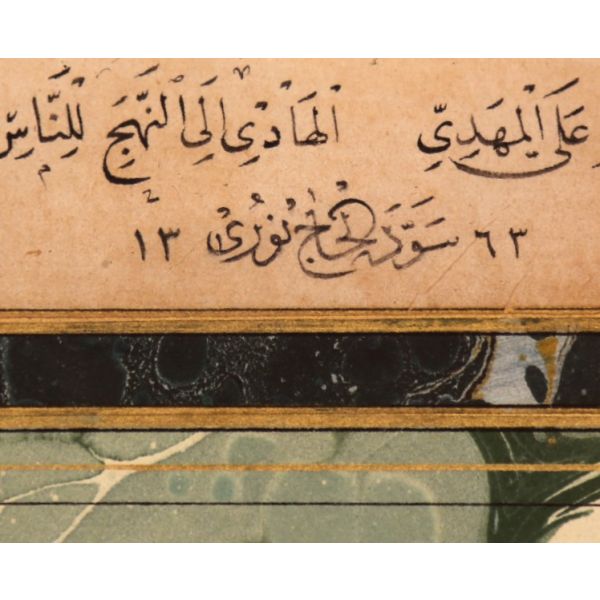 عَلَى الْمَهْدِيِّ الْهَادِي إِلَى النَّهْجِ لِلنَّاسِ
٦٣ سَوَّدَهُ الْحَاجّ نُورِي ١٣